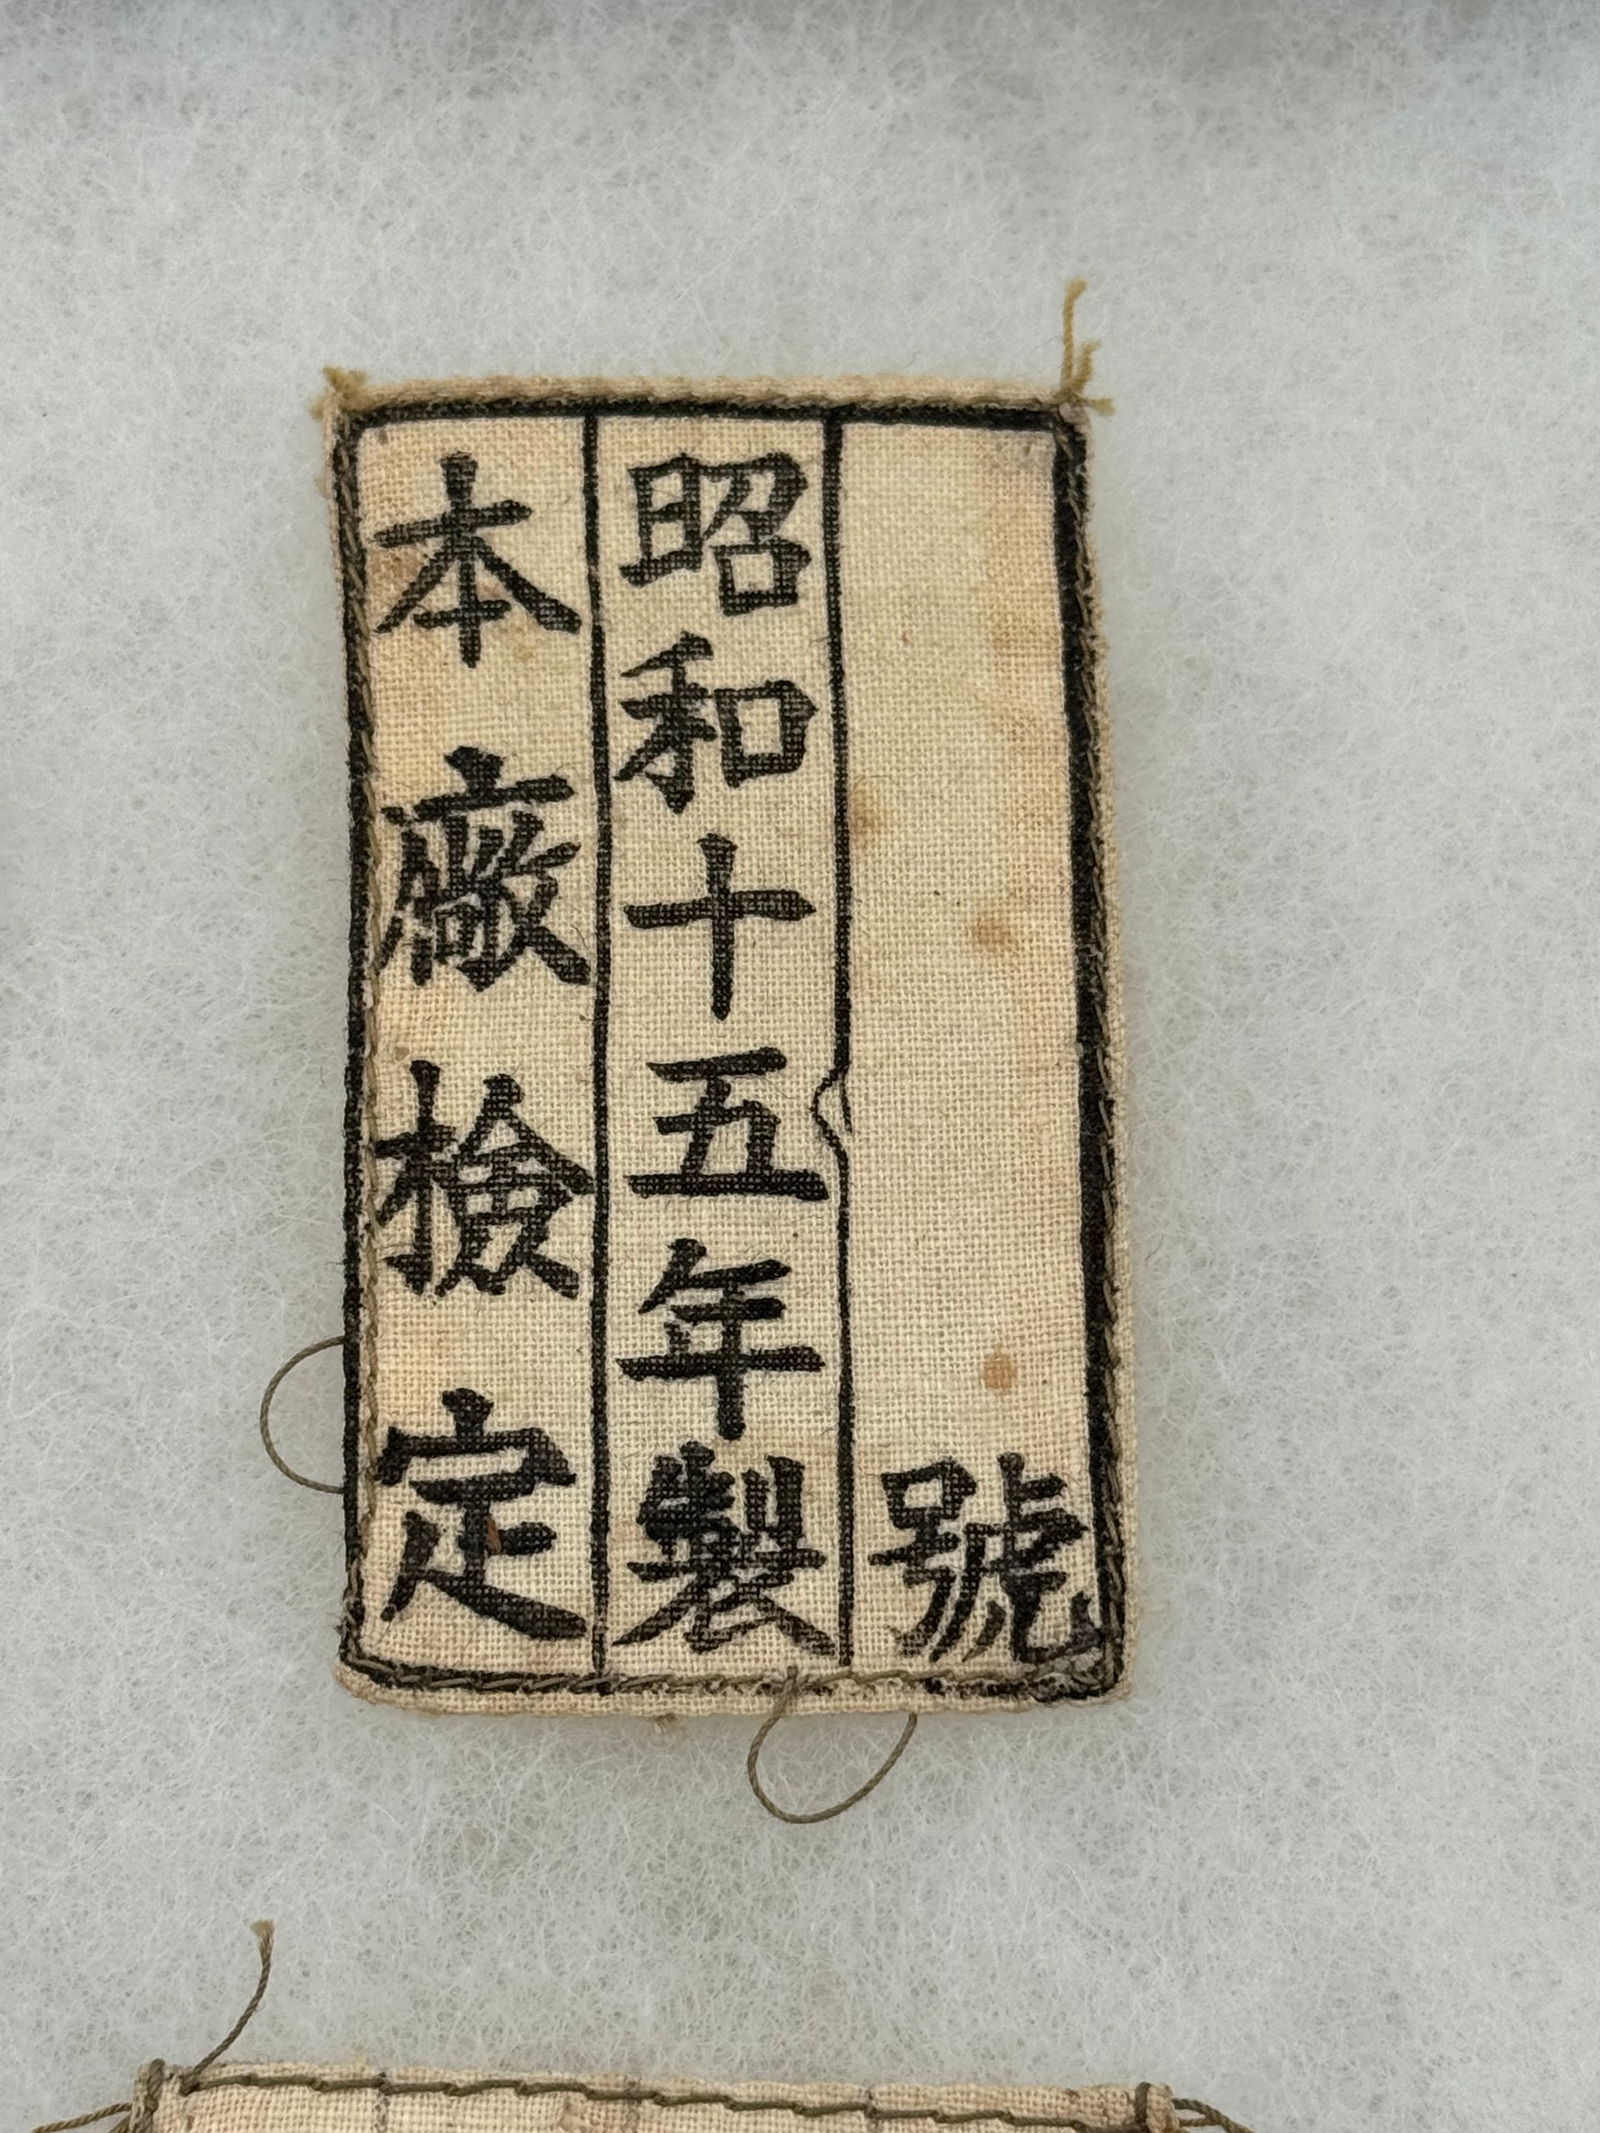 號
昭和十五年製
本廠檢定